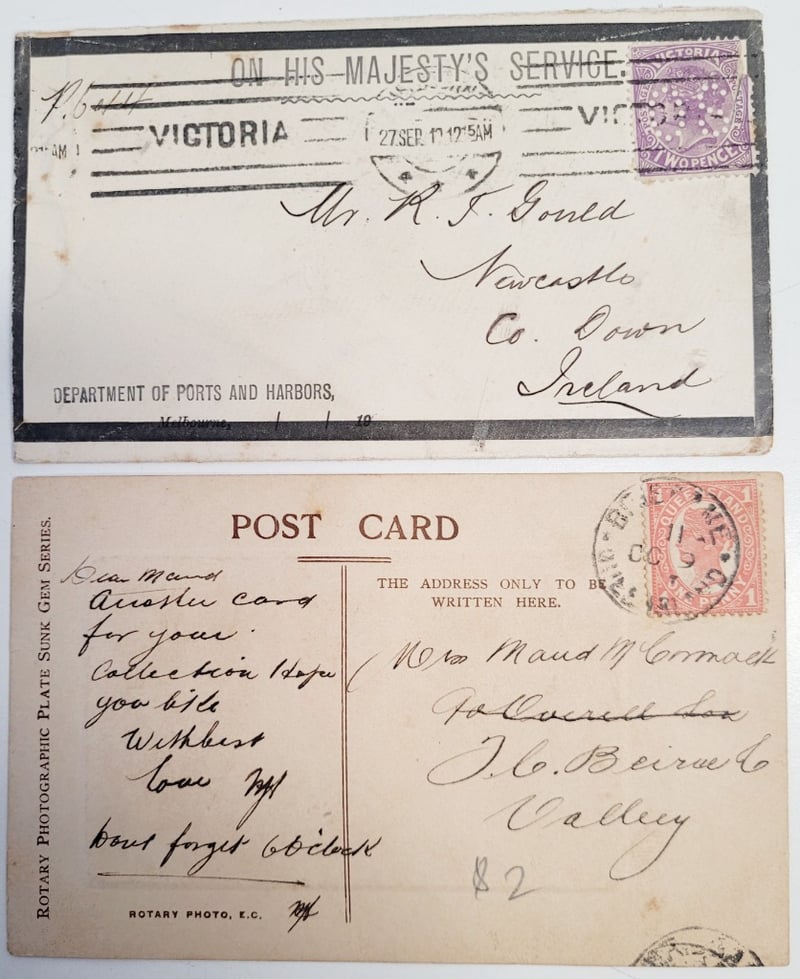 ON HIS MAJESTY'S SERVICE.
P.6044
VICTORIA
27 SEP 12 12 15AM
VICTORIA
TWO PENCE
Mr. R. F. Gould
Newcastle
Co. Down
Ireland
DEPARTMENT OF PORTS AND HARBORS,
Melbourne, / / 19
POST CARD
ROTARY PHOTOGRAPHIC PLATE SUNK GEM SERIES.
Dear Maud
Another card
for your
Collection Hope
you like
With best
love
Dont forget 6 O'clock
ROTARY PHOTO, E.C.
THE ADDRESS ONLY TO BE
WRITTEN HERE.
BRISBANE
QUEENSLAND
1 ONE PENNY 1
Miss Maud McCormack
T. C. Beirne & Co
Valley
$2